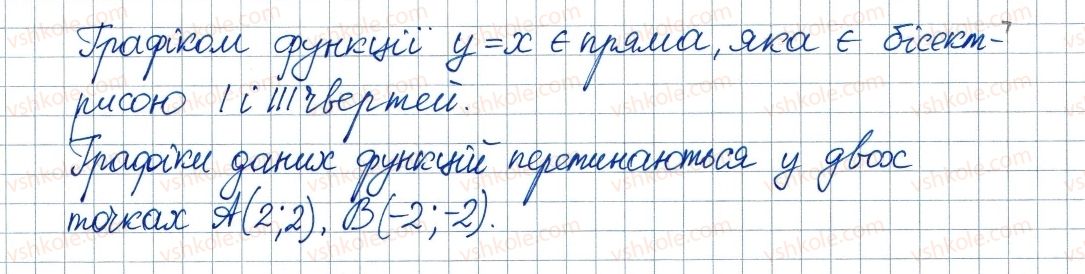 Графіком функції y = x є пряма, яка є бісект-
рисою I і III чвертей.
Графіки даних функцій перетинаються у двох
точках A(2;2), B(-2;-2).